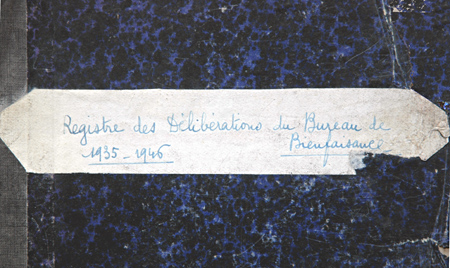 Registre des Délibérations du Bureau de
1935-1946 Bienfaisance